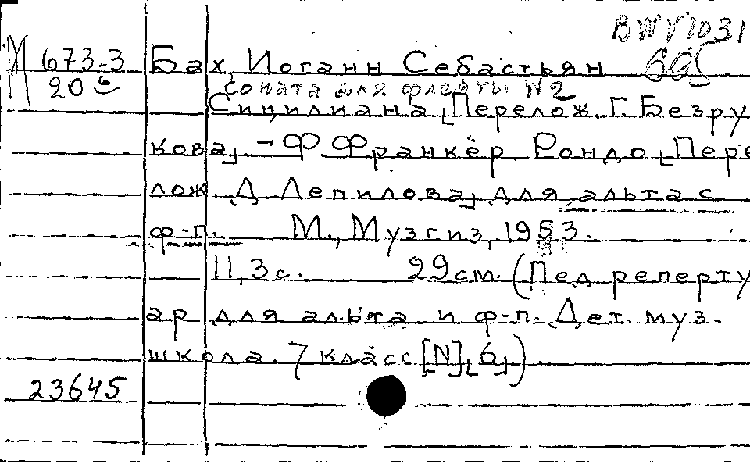 BWV 1031
М 673-3 Бах, Иоганн Себастьян 605
20 6 Соната для флейты №2
Сицилиана [Перелож. Г. Безру
кова] – Ф Франкёр Рондо [Пере
лож. Д Лепилова] для альта с
ф-п. М., Музгиз, 1953.
11, 3 с. 29 см. (Пед реперту
ар для альта и ф-п. Дет. муз.
школа. 7 класс [N] [6])
23645